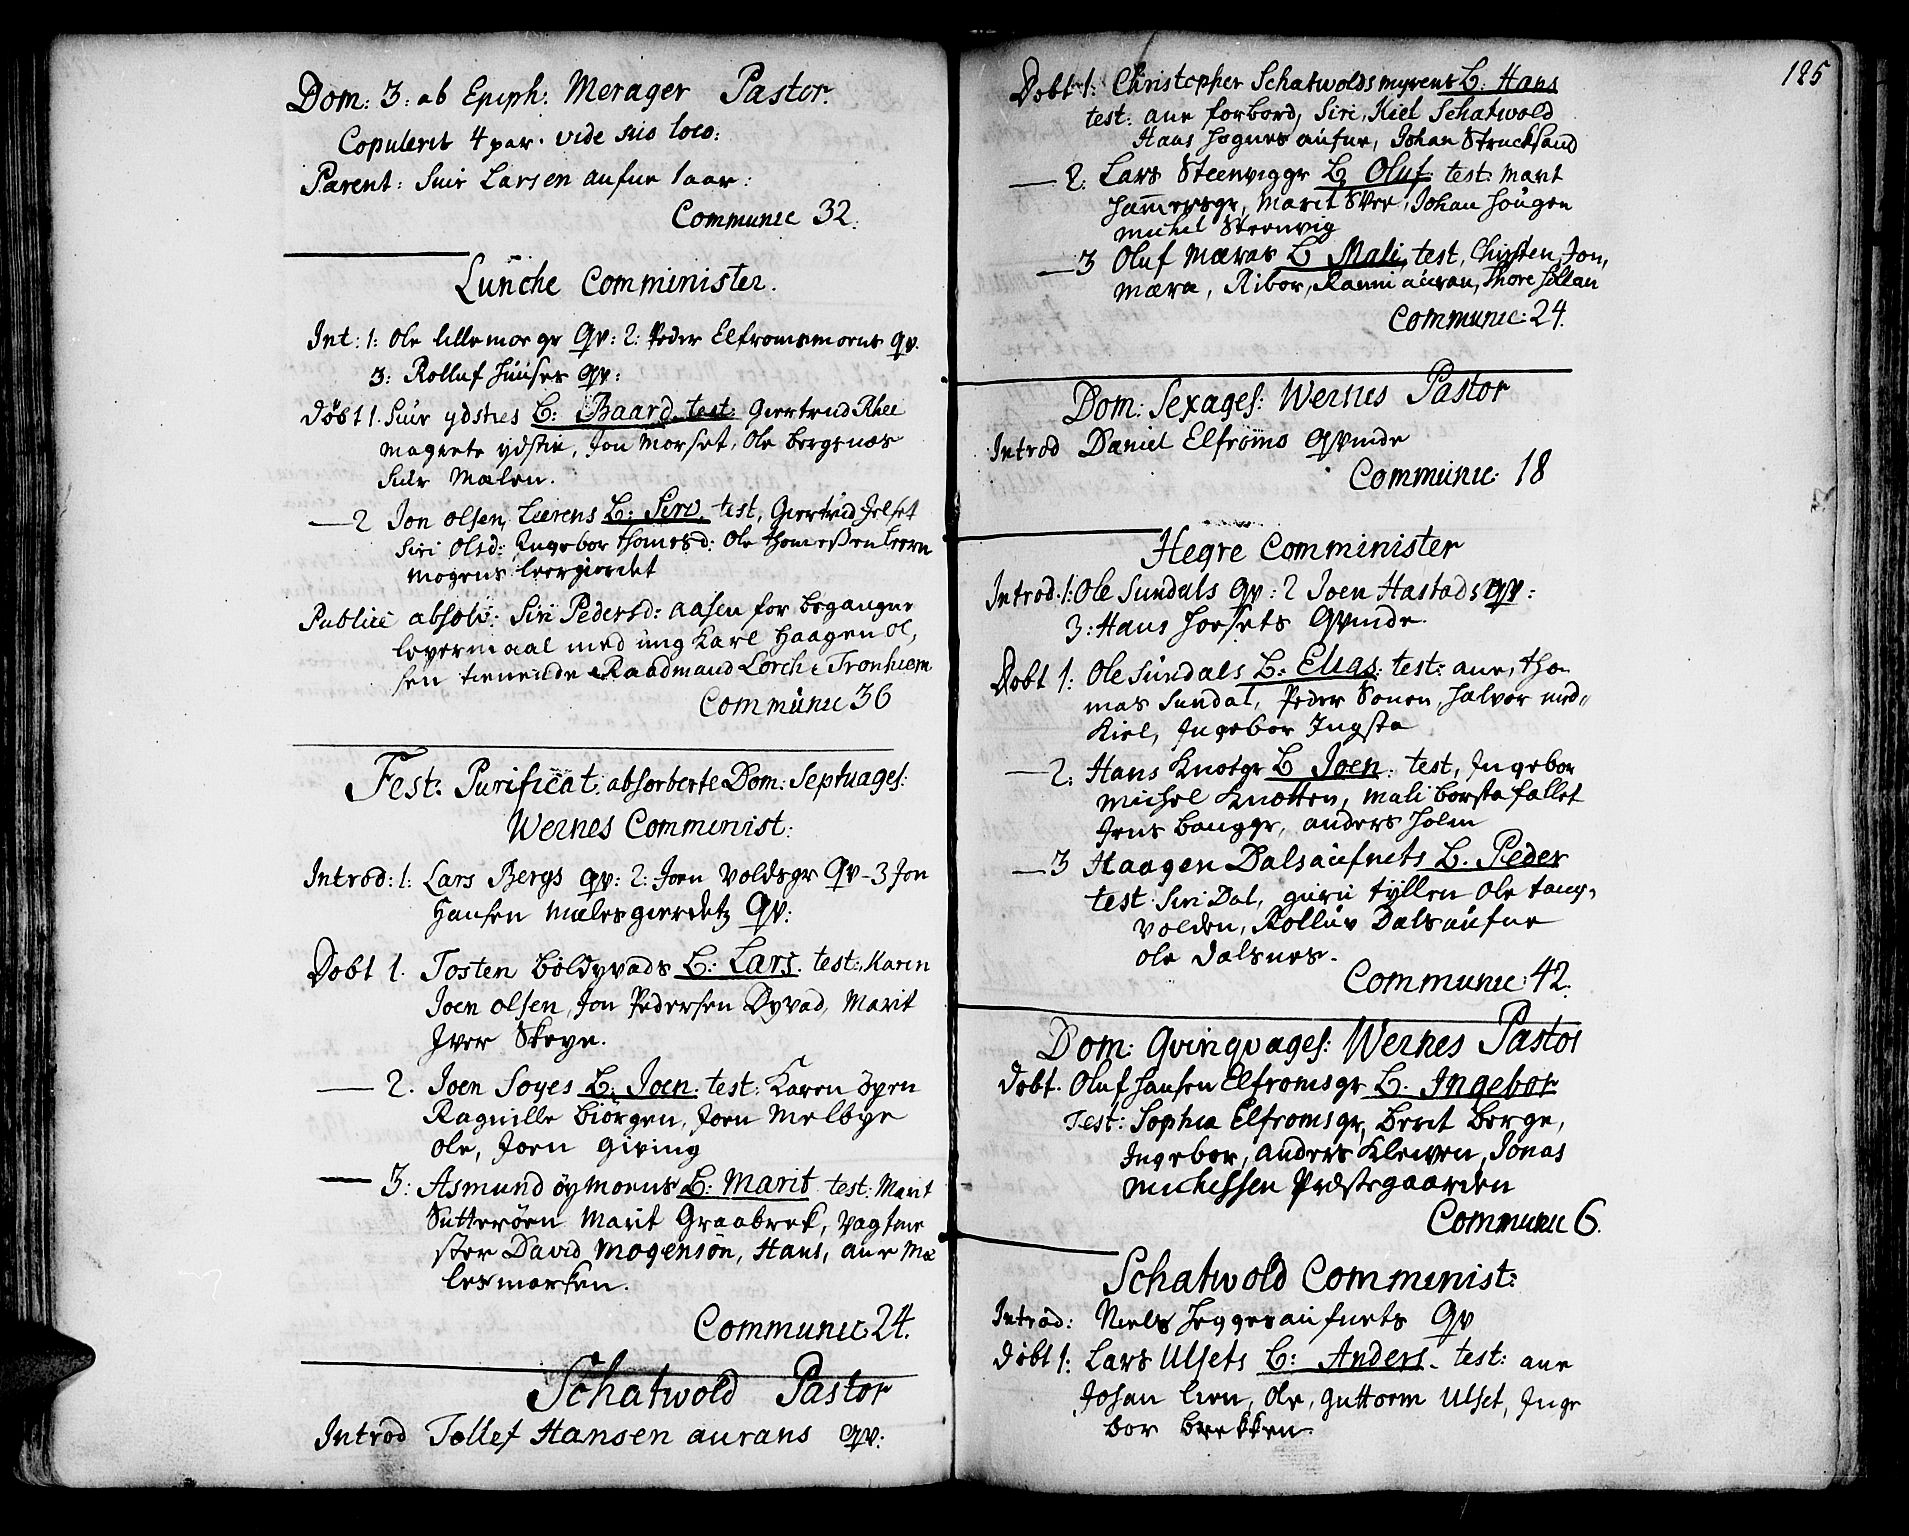 Dom: 3: ab Epiph: Merager Pastor.
Copulerit 4 par. vide suo loco:
Parent: Siur Larsen aufne 1 aar:
Communic 32.
Lunche Comminister.
Int: 1: Ole lillemorgr Qv: 2: Peder Elfromsmoens qv.
3: Rolluf Huuses Qv:
Döbt 1. Siur ydsties B: Baard test: Giertrud Rhee
Magnete ydstie, Jon Morset, Ole bergsnæs
Siur Mælen.
— 2 Jon olsen Leerens B: Siri test, Giertrud Jelset
Siri Olsd: Ingebor thomesd: Ole thomeßen leern
Mogens leergierdet
Publicè absolv: Siri Pedersd: aasen for begangne
levermaal med ung Karl Haagen ol,
sen tienende Raadmand Lorch i Tronhiem
Communic 36
Fest: Purificat. absorberte Dom: Septuages:
Wernes Comminist:
Introd: 1: Lars Bergs qv: 2: Joen Voldsgr Qv - 3 Jon
Hansen Mælesgierdetz Qv:
Döbt 1. Tosten böldyvads B: Lars. test: Karen
Joen olsen, Jon Pedersen Dyvad, Marit
Iver Skeye.
— 2. Joen Soyes B: Joen. test: Karen öyen
Ragnille Biörgen, Joen Melbye
Ole, Joen Giving
— 3: Asmund öymoens B: Marit test: Marit
Sutteröen Marit Graabrek, Vagtme
ster David Mogensön, Hans, ane Mæ
lesmarken.
Communic 24.
Schatwold Pastor
Introd Tollef Hansen aurans qv:
185
Döbt 1: Christopher Schatwoldsmyrens B: Hans
test: ane forbord, Siri, Kiel Schatwold
Hans Hognesaufne, Johan Strucksand
— 2. Lars Steenviggr B Oluf test: Marit
Hammersgr, Marit Skee, Johan Hougen
Michel Steenvig
— 3 Oluf Mæras B Mali, test, Chirsten, Jon,
Mæra, Ribor, Ranni auran, Thore Hellan
Communic: 24.
Dom: Sexages: Wernes Pastor
Introd Daniel Elfroms Qvinde
Communic: 18
Hegre Comminister
Introd: 1: Ole Sundals Qv: 2 Joen Hastads qv:
3: Hans Horsets Qvinde.
Döbt 1: Ole Sundals B: Elias: test: ane, tho
mas Sundal, Peder Sonen, Halvor med,
Kiel, Ingebor Ingsta
— 2: Hans Knotgr B Joen: test, Ingebor
Michel Knotten, Mali borstafallet
Jens bauggr, anders Holm
— 3 Haagen Dalsaufnets B. Peder
test Siri Dal, guru tyllen Ole tang,
volden, Rolluv Dalsaufne
ole Dalsnes.
Communic: 42.
Dom: Qvinqvages: Wernes Pastor
Döbt. Oluf Hansen Elfromsgr B. Ingebor
Test: Sophia Elfromsgr, Berit Berge,
Ingebor, anders Klewen, Jonas
Michelssen Præstegaarden
Communic 6.
Schatwold Comminist:
Introd: Niels Heggesaufnets Qv
Döbt 1: Lars Ulsets B: Anders. test: ane
Johan lien, Ole, Guttorm Ulset, Inge
bor brekken.